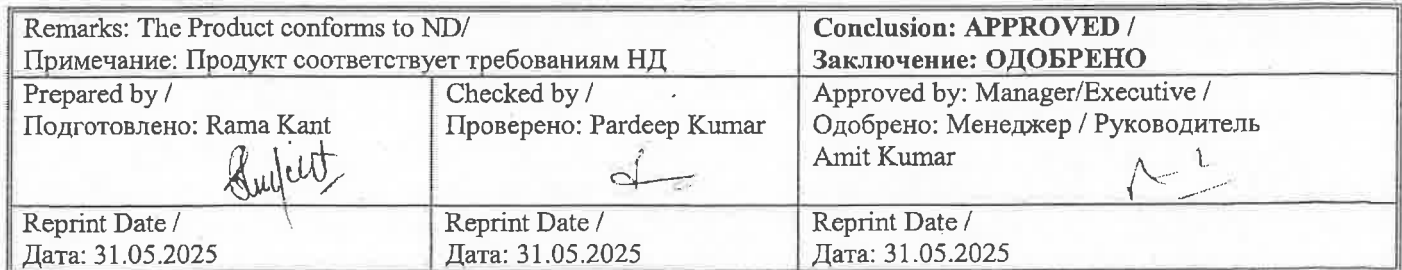 Remarks: The Product conforms to ND/
Примечание: Продукт соответствует требованиям НД
Conclusion: APPROVED /
Заключение: ОДОБРЕНО
Prepared by /
Подготовлено: Rama Kant
Checked by /
Проверено: Pardeep Kumar
Approved by: Manager/Executive /
Одобрено: Менеджер / Руководитель
Amit Kumar
Reprint Date /
Дата: 31.05.2025
Reprint Date /
Дата: 31.05.2025
Reprint Date /
Дата: 31.05.2025